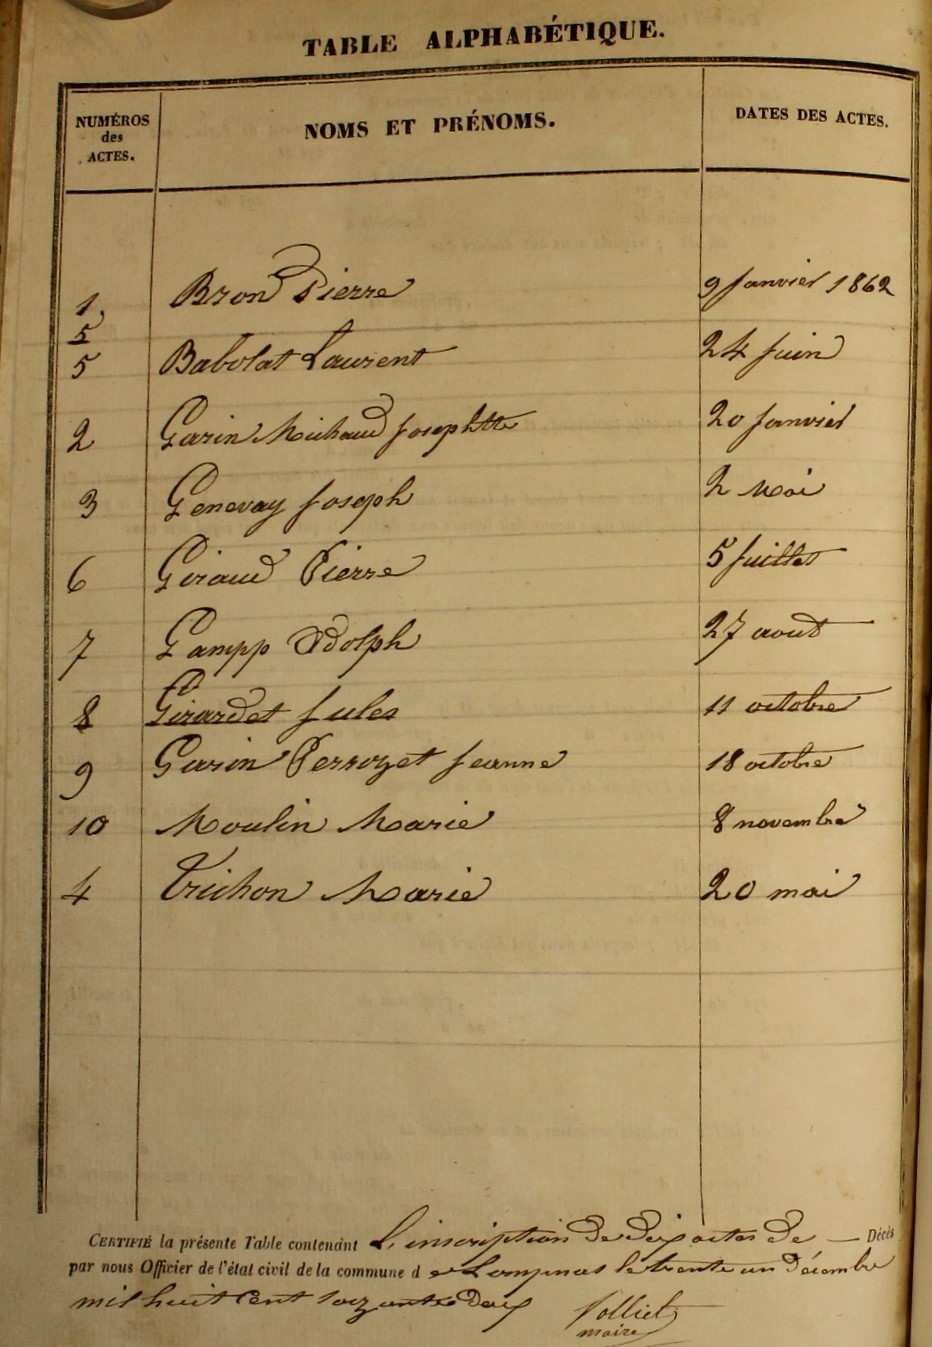 TABLE ALPHABÉTIQUE.
NUMÉROS des ACTES. NOMS ET PRÉNOMS. DATES DES ACTES.
1 Bron Pierre 9 Janvier 1862
5
5 Babolat Laurent 24 Juin
2 Garin Michaud Josephtte 20 Janvier
3 Genevay Joseph 2 Mai
6 Giraud Pierre 5 Juillet
7 Gampp Adolph 27 aout
8 Girardet Jules 11 octobre
9 Garin Perrozet Jeanne 18 octobre
10 Moulin Marie 8 novembre
4 Trichon Marie 20 mai
CERTIFIÉ la présente Table contenant L'inscription de dix actes de — Décès
par nous Officier de l'état civil de la commune d e le trente un Décembre
mil huit cent soixante deux
maire